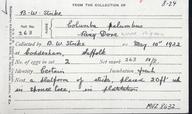 FROM THE COLLECTION OF
B. W. Tucker
8-24
Columba palumbus
263
Ring Dove
Collected by B. W. Tucker Date May 10th 1922
at Suffolk
No. of eggs in set 2 Set mark 263
Identity Certain Incubation fresh
Nest A platform of sticks, placed 20ft up
in spruce tree, in plantation
MVZ 8632